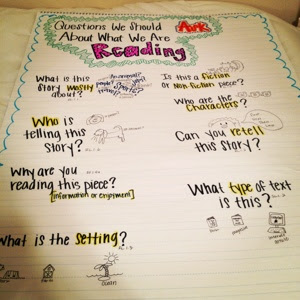 Questions We Should Ask
About What We Are
Reading
What is this
story mostly
about?
Is this a fiction
or non-fiction piece?
Who are the
characters?
Who is
telling this
story?
Can you retell
this story?
Why are you
reading this piece?
[information or enjoyment]
What type of text
is this?
What is the setting?